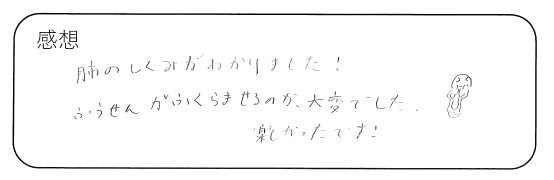 感想
肺のしくみがわかりました!
ふうせんがふくらませるのが、大変でした.
楽しかったです!